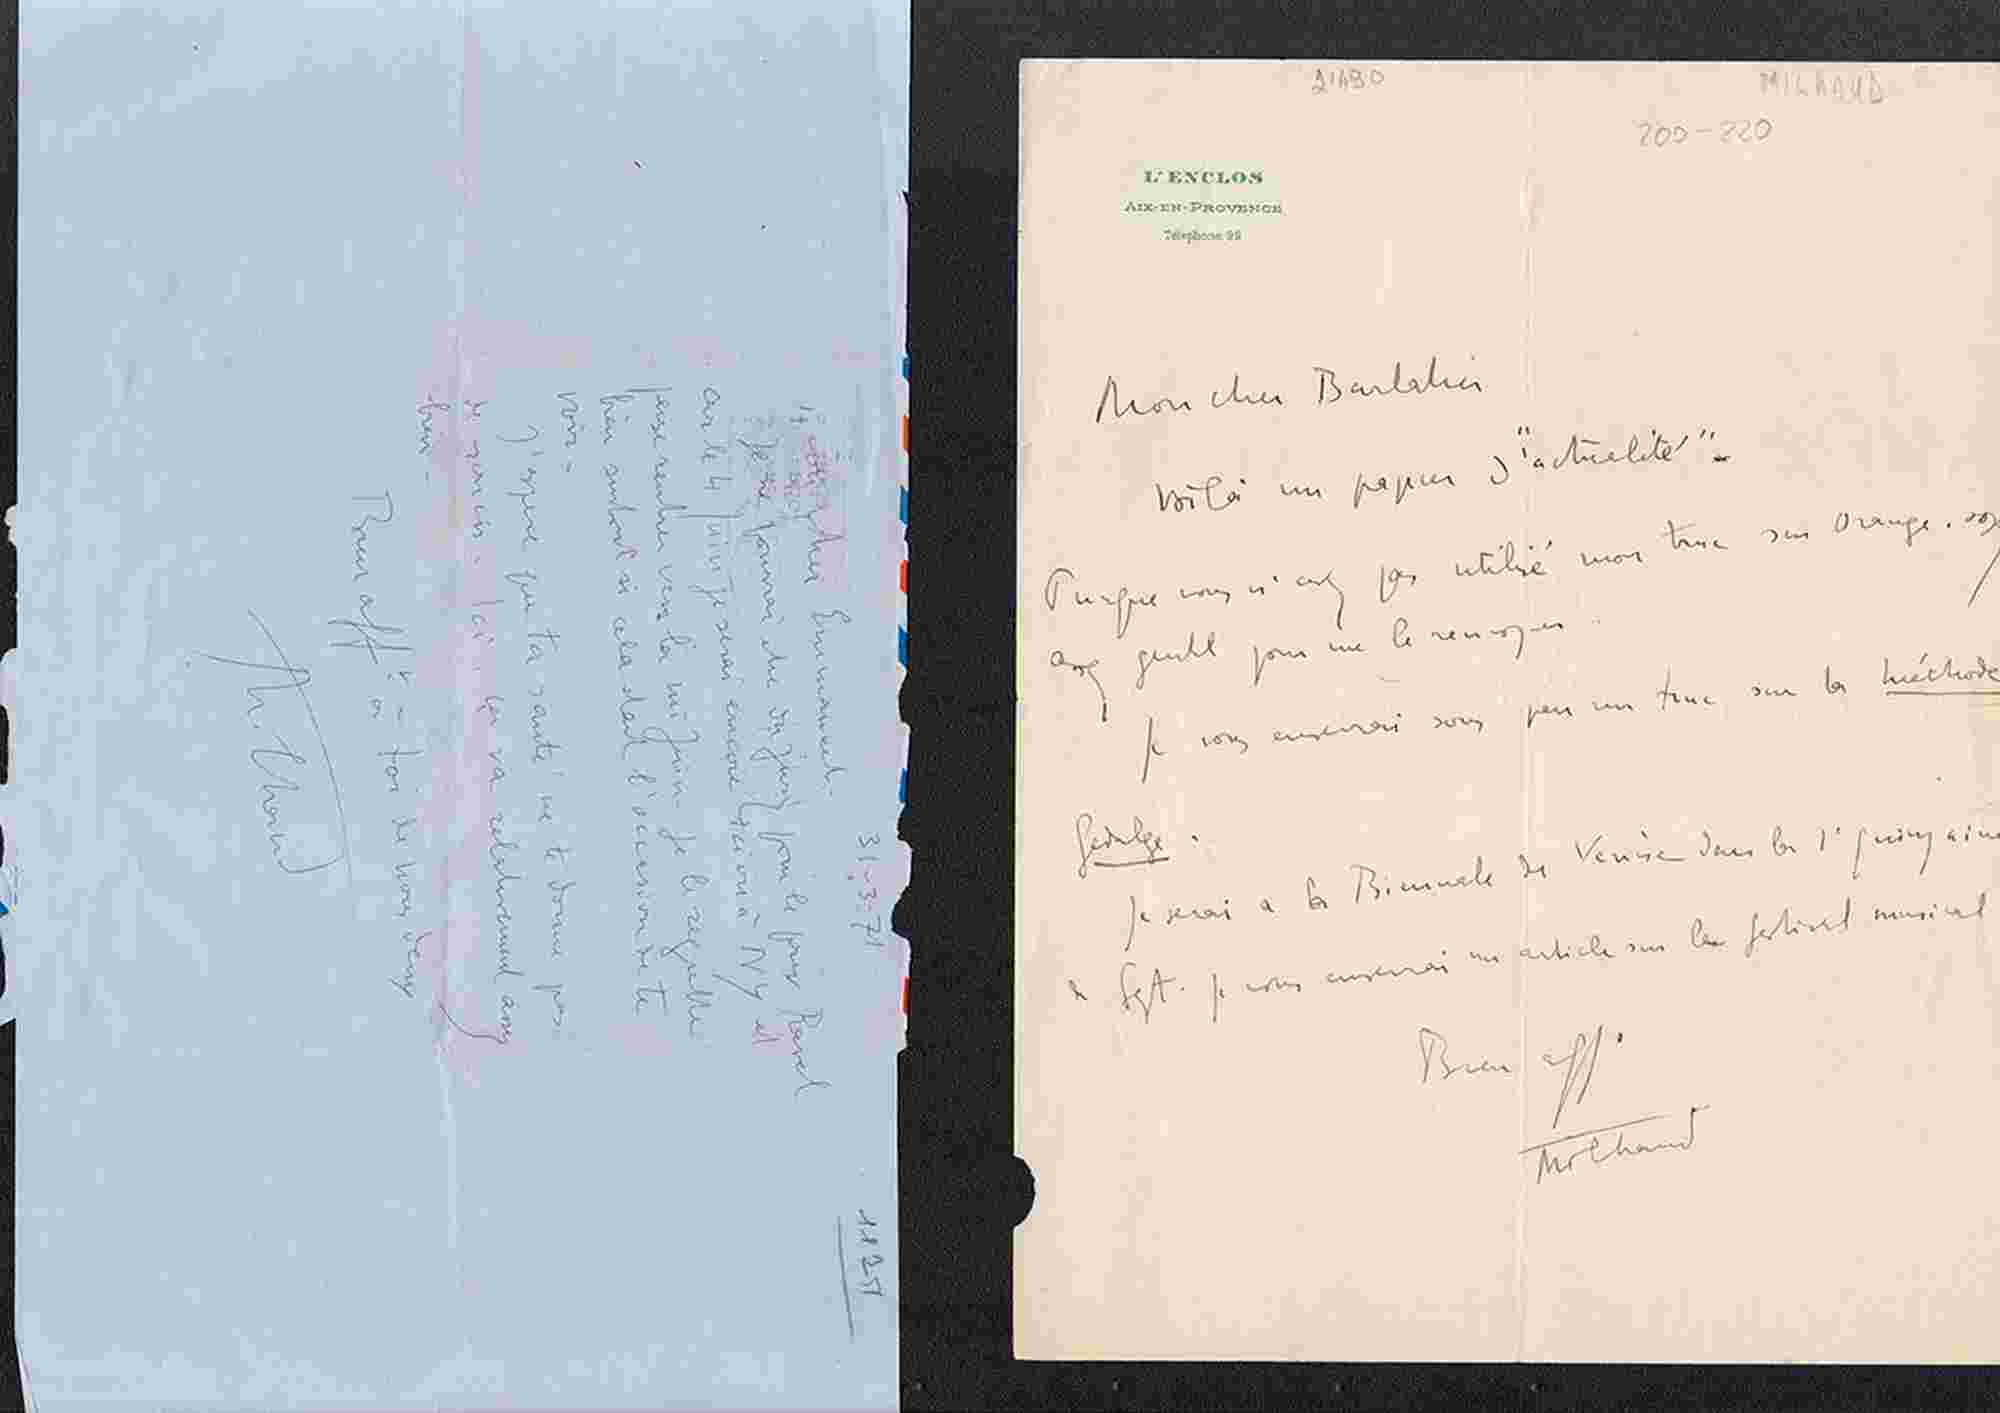 31-3-71
cher Emmanuel.
Je ne pourrai du juin pour le jour Ravel
car le 4 juin je serai encore ici ou à NY et
pense rentrer vers la mi juin. Je le regrette
bien surtout si cela dait l'occasion de te
voir.
J'espère que ta santé ne te donne pas
de soucis. Ici ça va relativement
bien.
Bien aff à toi de nous deux
Milhaud
11251
21490
MILHAUD
200-220
L'ENCLOS
AIX-EN-PROVENCE
Téléphone 99
Mon cher Barlatier
Voilà un papier d'"actualité".
Puisque vous n'avez pas utilisé mon truc sur Orange. soyez
assez gentil pour me le renvoyer.
Je vous enverrai sous peu un truc sur la méthode
Gedalge.
Je serai à la Biennale de Venise dans la 1e quinzaine
de Sept. Je vous enverrai un article sur le festival musical
Bien aff.
Milhaud